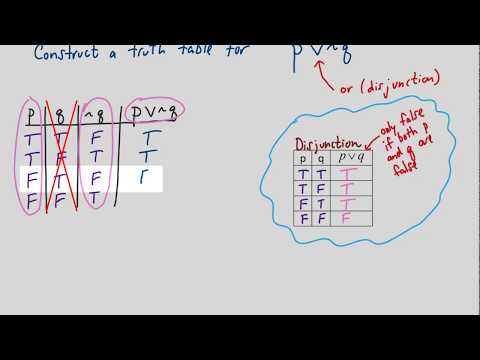 Construct a truth table for p ∨ ~q
or (disjunction)
p q ~q p ∨ ~q
T T F T
T F T T
F T F
F F T
Disjunction
p q p ∨ q
T T T
T F T
F T T
F F F
only false
if both p
and q are
false